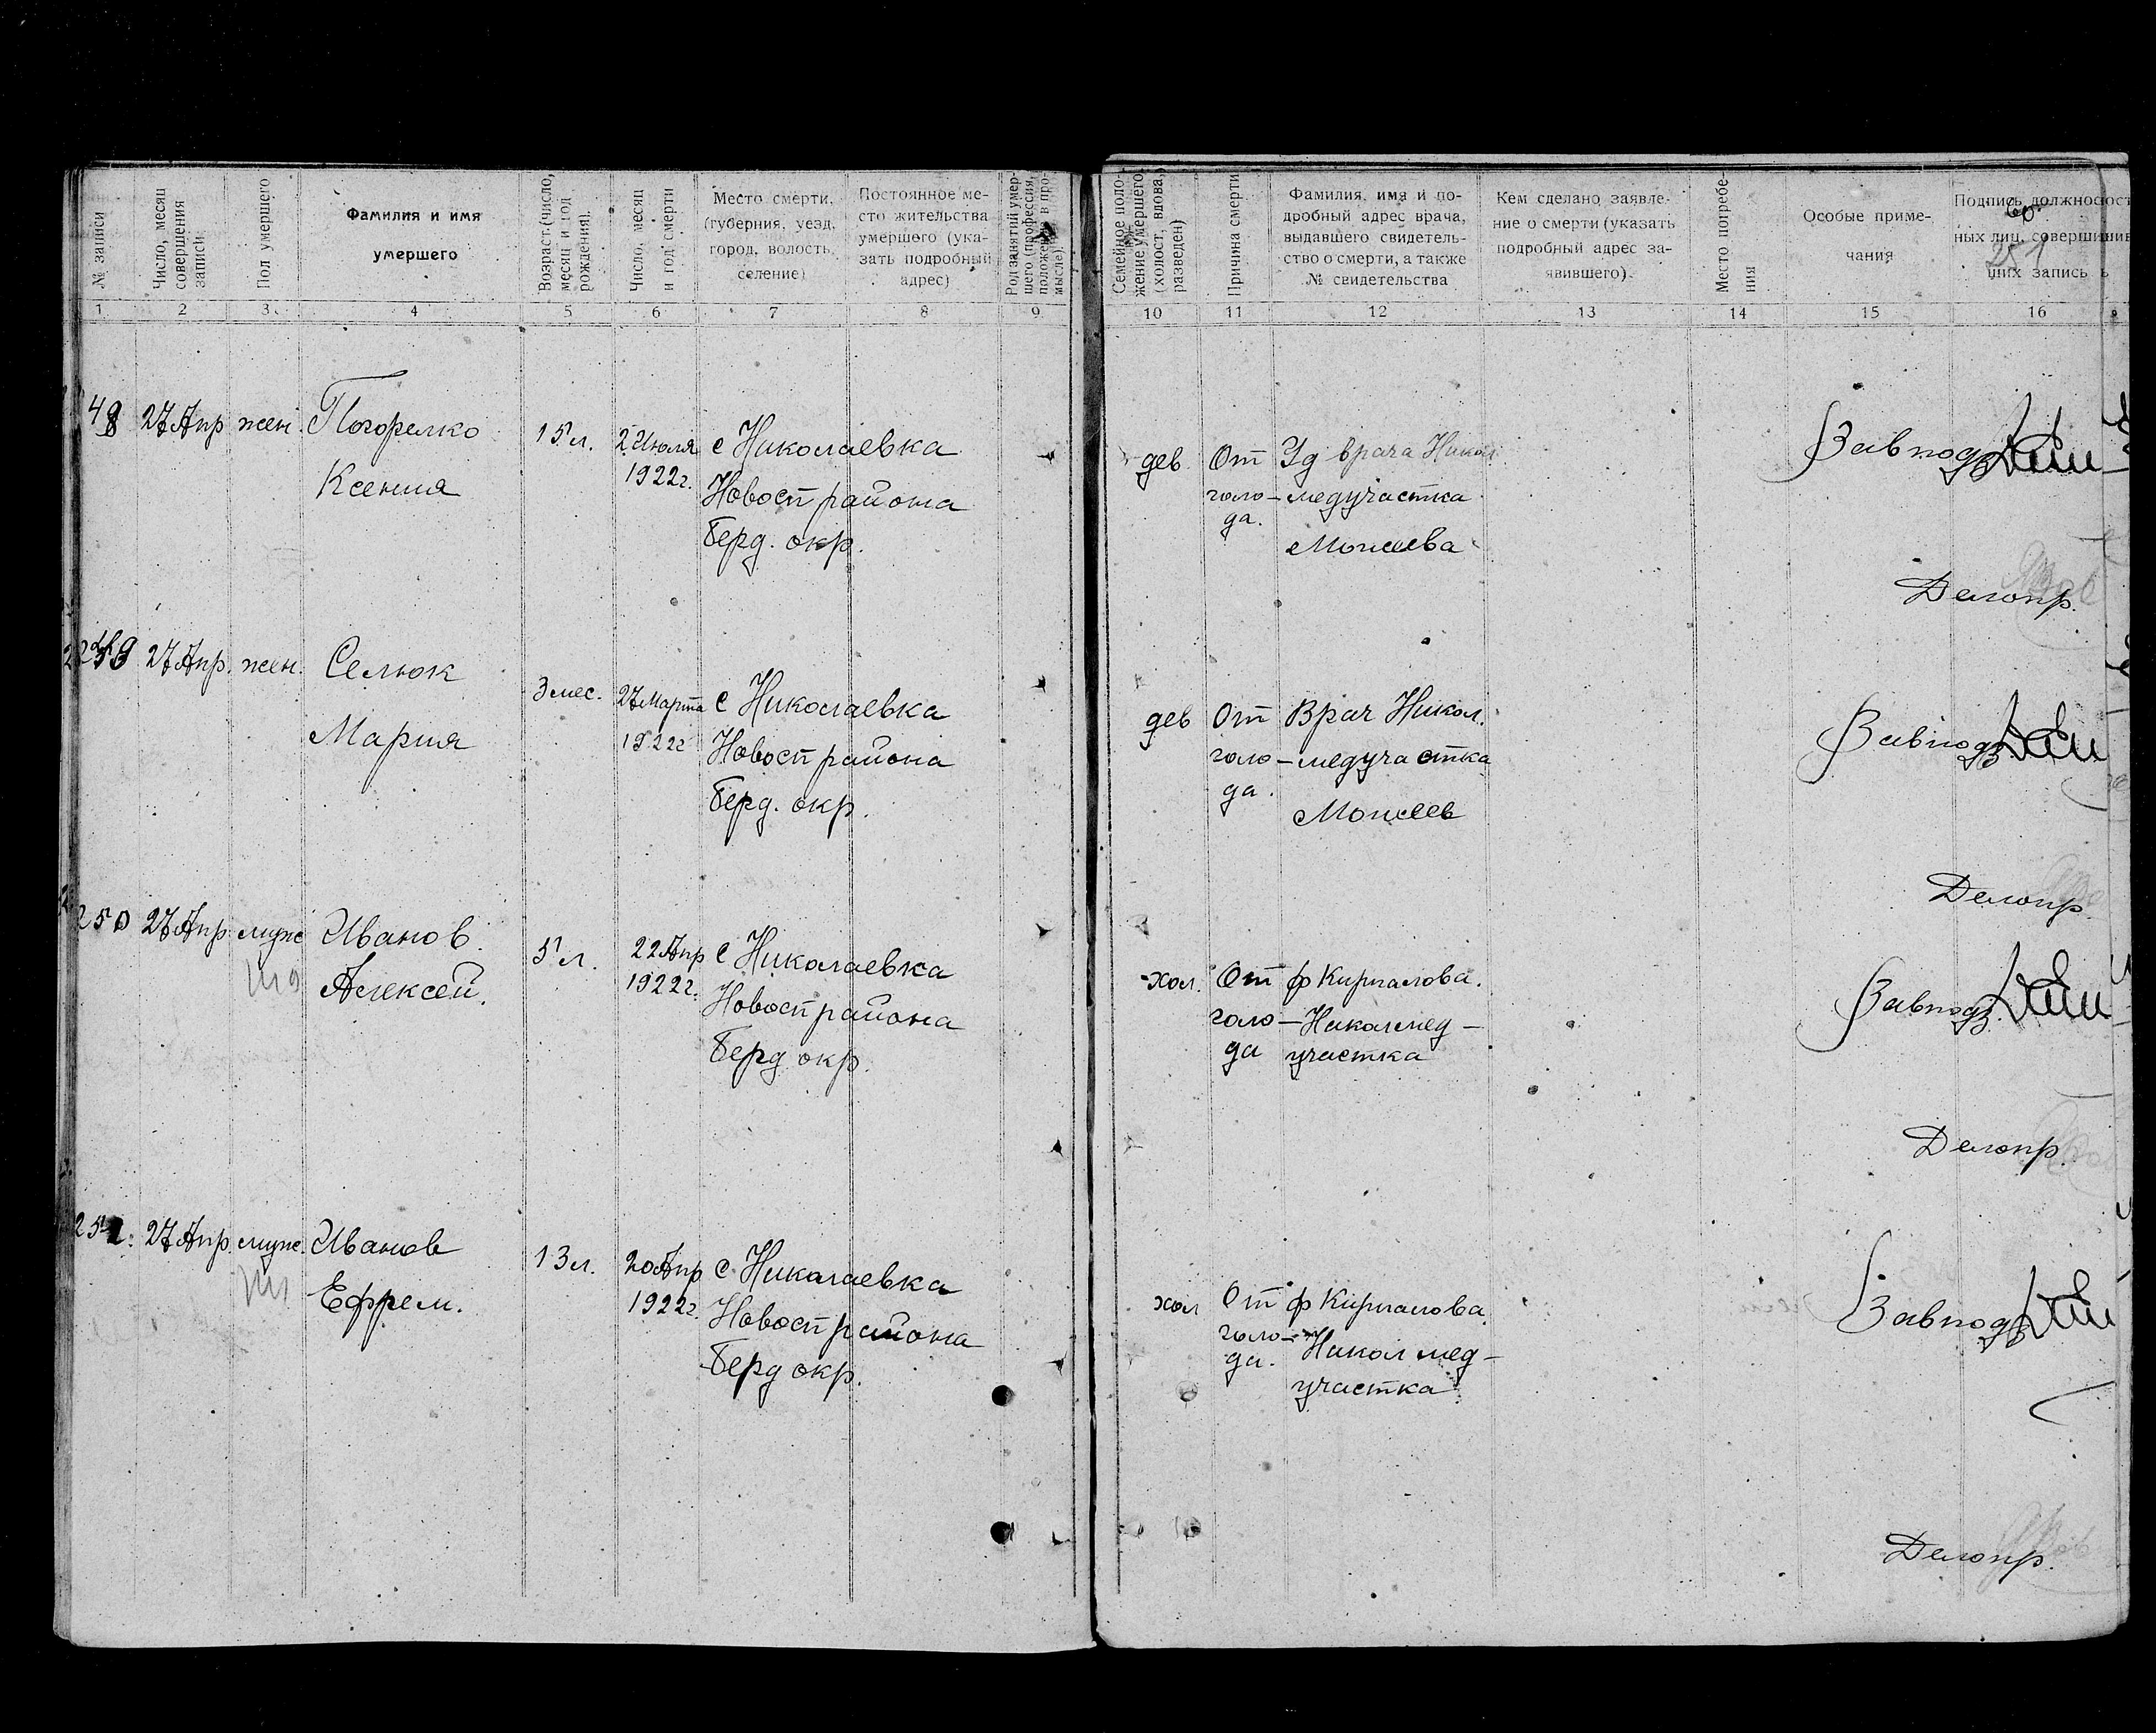 № записи
Число, месяц совершения записи
Пол умершего
Фамилия и имя умершего
Возраст (число, месяц и год рождения).
Число, месяц и год смерти
Место смерти, (губерния, уезд, город, волость, селение)
Постоянное место жительства умершего (указать подробный адрес)
Род занятий умершего (профессия, положение в промысле).
Семейное положение умершего (холост, вдова, разведен)
Причина смерти
Фамилия, имя и подробный адрес врача, выдавшего свидетельство о смерти, а также № свидетельства
Кем сделано заявление о смерти (указать подробный адрес заявившего).
Место погребения
Особые примечания
Подпись должностных лиц, совершивших запись
60.
251
1 2 3 4 5 6 7 8 9 10 11 12 13 14 15 16
48 27 Апр жен. Погорелко
Ксения
15 л. 2 Июля
1922 г.
с Николаевка
Новосп района
Берд. окр.
дев От
голо-
да.
Уд врача Никол
медучастка
Моисеева
Завподз
Делопр.
249 27 Апр. жен. Селюк
Мария
3 мес. 27 Марта
1922 г
с Николаевка
Новосп района
Берд. окр.
дев От
голо-
да.
Врач Никол.
медучастка
Моисеев
Завподз
Делопр.
250 27 Апр. муж Иванов
Алексей.
5 л. 22 Апр
1922 г.
с Николаевка
Новосп района
Берд окр.
хол. От
голо-
да
ф Кирпалова.
Николмед-
участка
Завподз
Делопр.
27 Апр. муж. Иванов
Ефрем.
13 л. 20 Апр
1922 г.
с Николаевка
Новосп района
Берд окр.
хол От
голо-
да.
ф Кирпалова.
Никол мед-
участка
Завподз
Делопр.